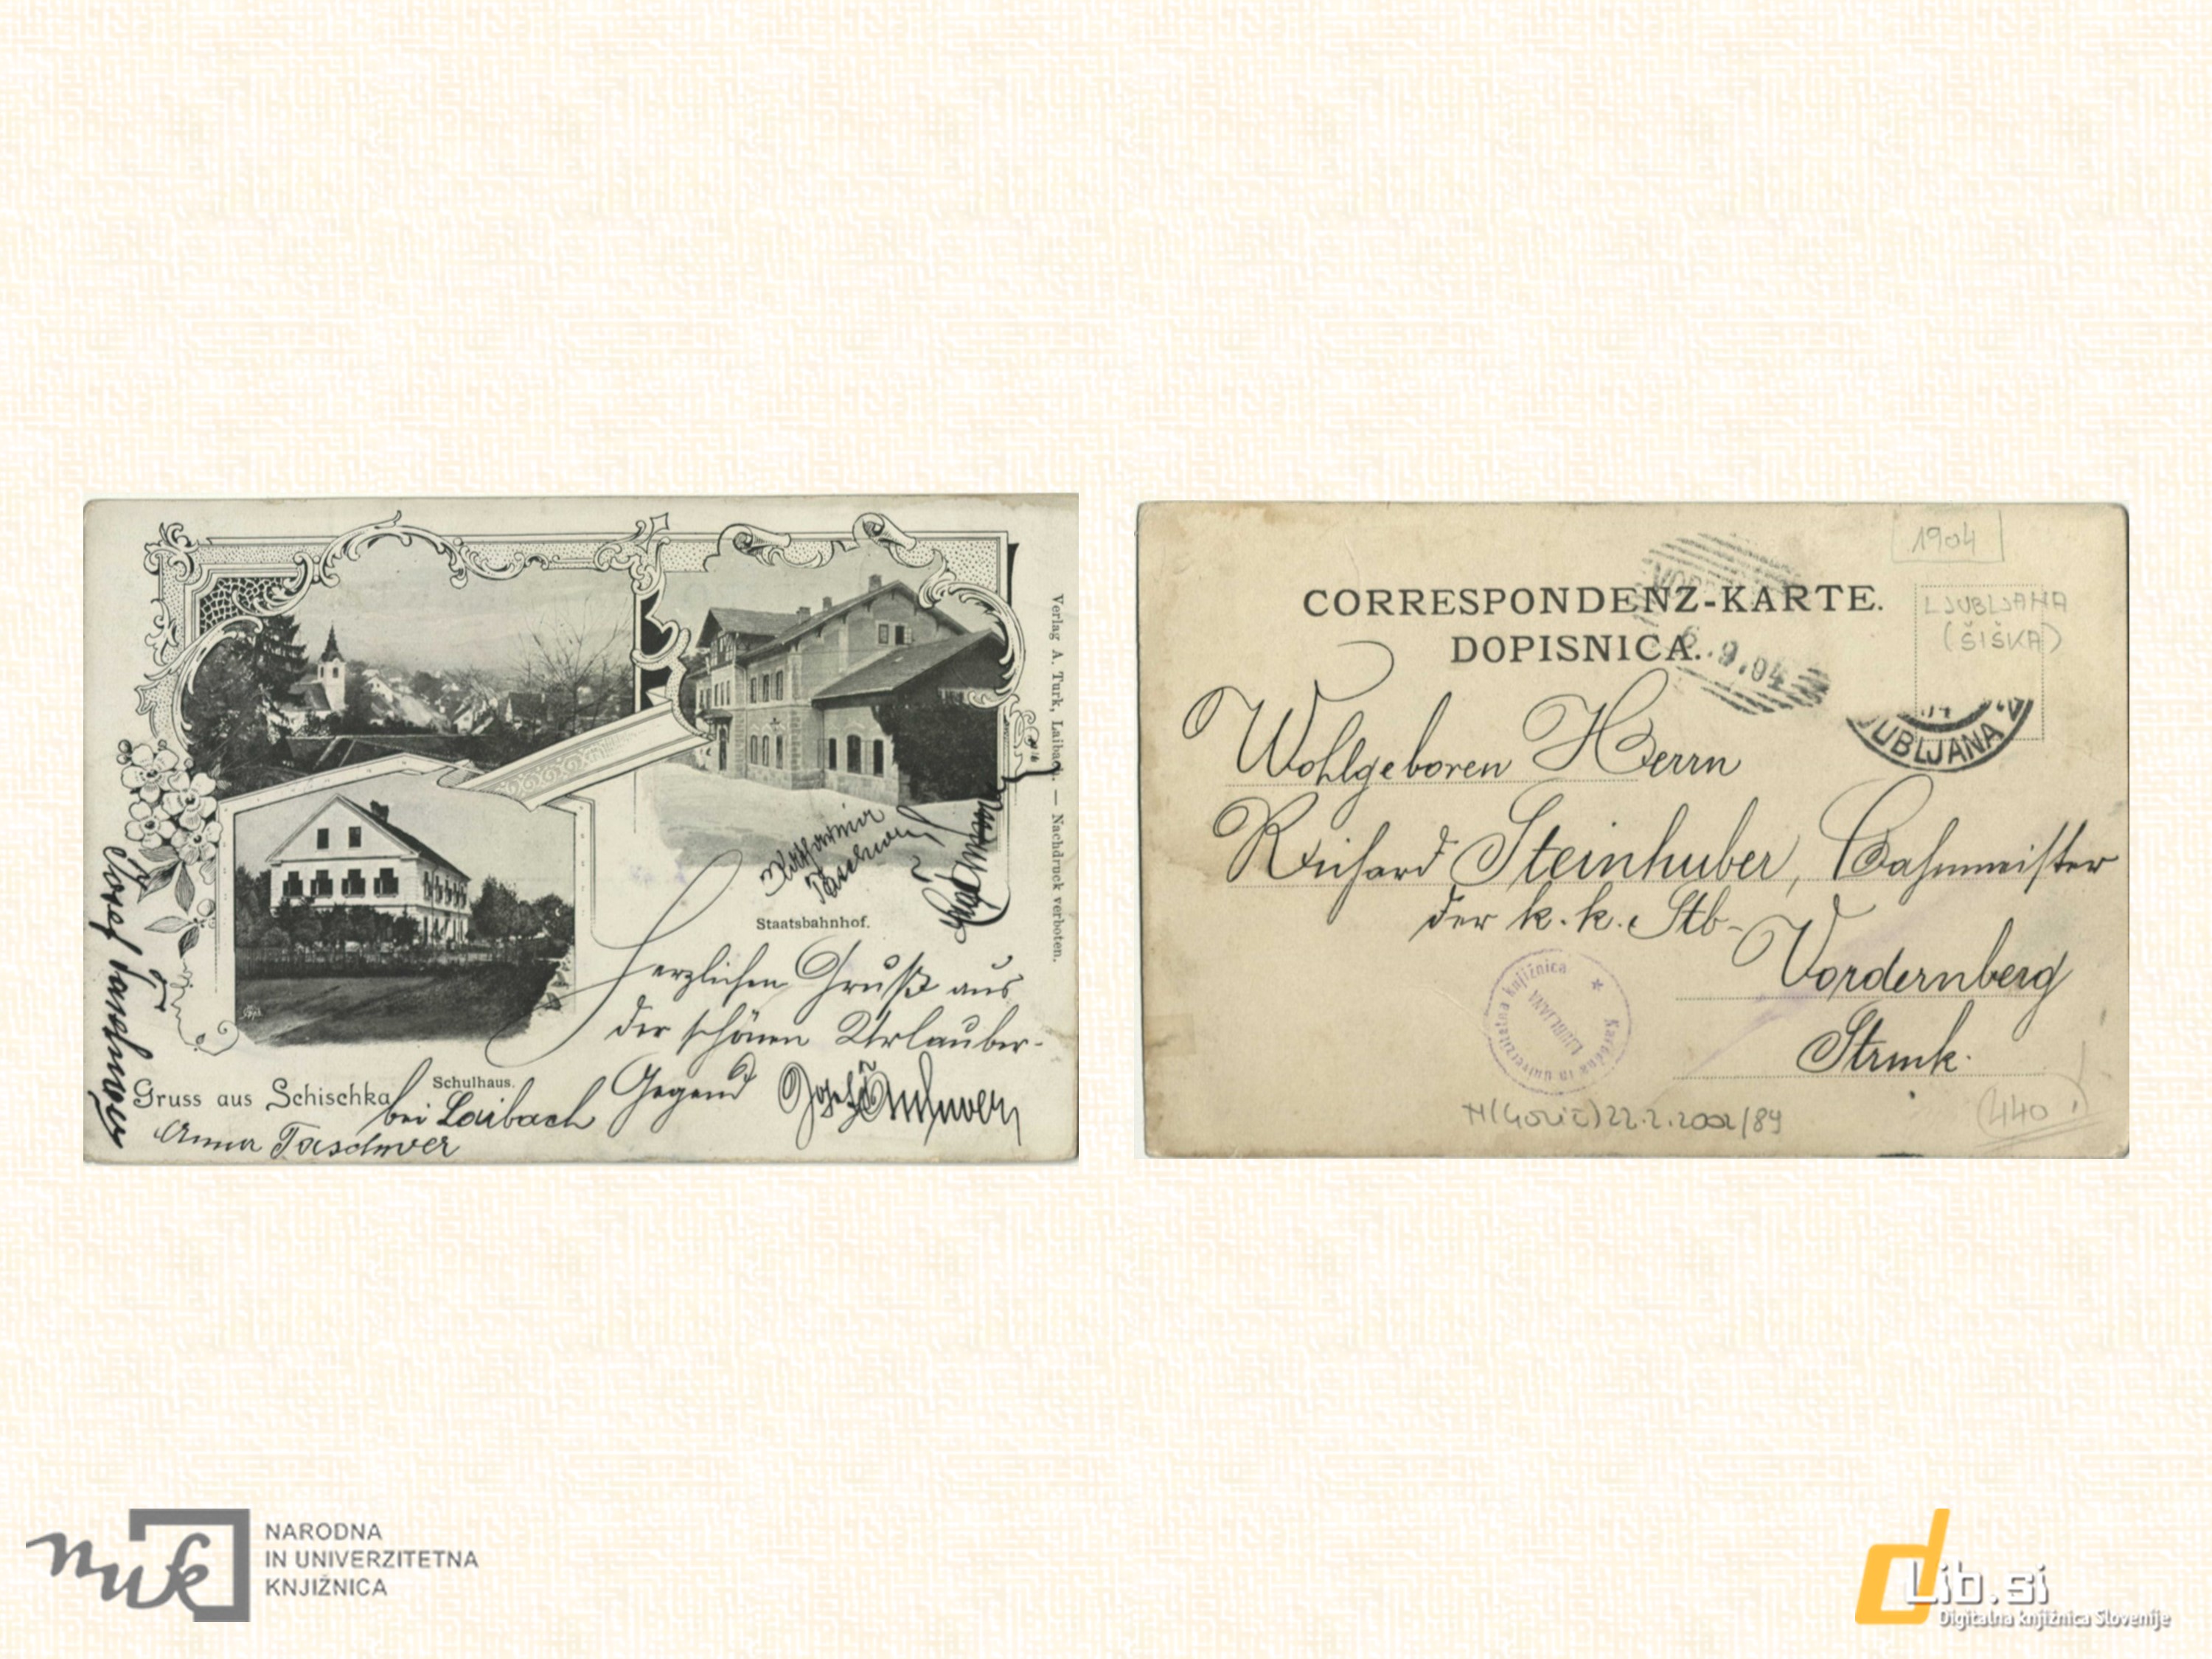 Verlag A. Turk, Laibach. — Nachdruck verboten.
Staatsbahnhof.
Herzlichen Gruß aus
der schönen Urlauber-
Gegend
Schulhaus.
Gruss aus Schischka
bei Laibach
Anna Taschwer
Josef Taschwer
1904
CORRESPONDENZ-KARTE.
DOPISNICA.
LJUBLJANA
(ŠIŠKA)
6.9.04
UBLJANA
Wohlgeboren Herrn
Richard Steinhuber, Bahnmeister
der k. k. Stb-
Vordernberg
Strmk.
Narodna in univerzitetna knjižnica
LJUBLJANA
N(Gorič)22.2.2002/89
(440,)
nuk
NARODNA
IN UNIVERZITETNA
KNJIŽNICA
dLib.si
Digitalna knjižnica Slovenije